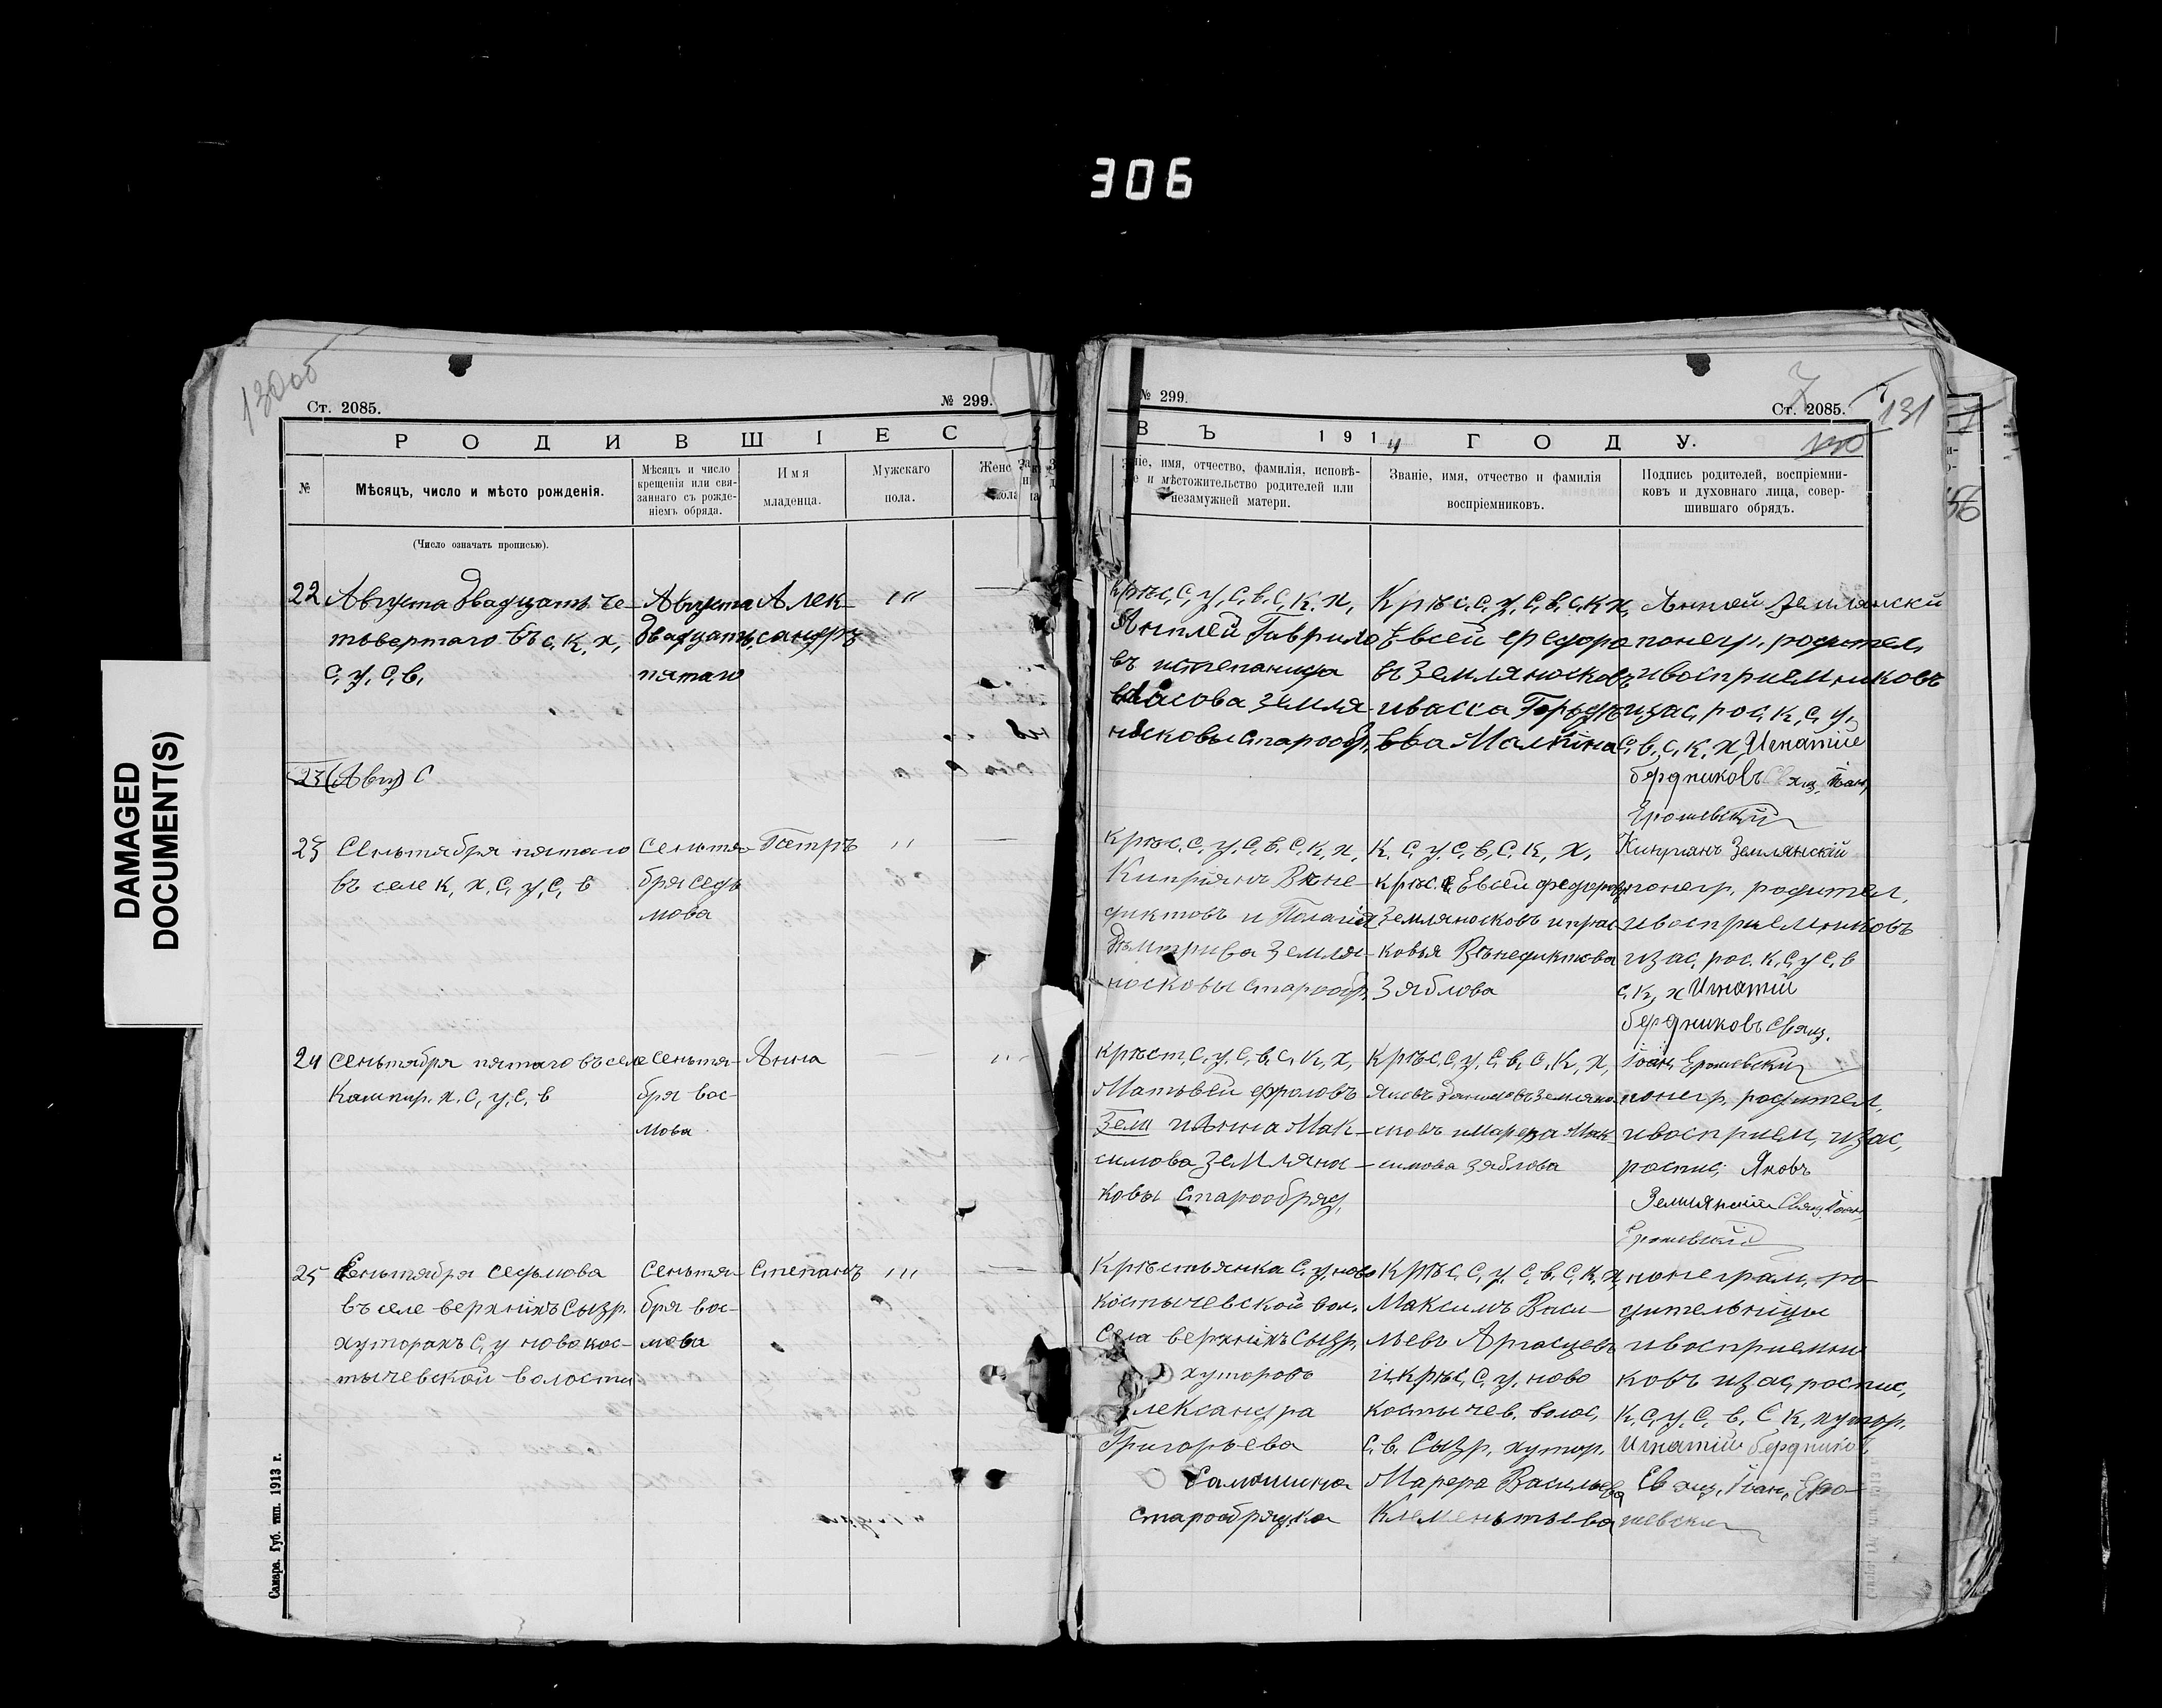 306
DAMAGED
DOCUMENT(S)
130об
Ст. 2085.
№ 299.
РОДИВШІЕС
№
Мѣсяцъ, число и мѣсто рожденія.
Мѣсяцъ и число
крещенія или свя-
заннаго съ рожде-
ніемъ обряда.
Имя
младенца.
Мужскаго
пола.
Женс
(Число означать прописью).
22 Августа двадцать че-
тьвертаго въ с, к, х,
с, у, с, в,
Августа
двадцать
пятаго
Алек-
сандръ
23 (Авгу) С
23 Сеньтября пятаго
въ селе к, х, с, у, с, в
сеньтя-
бря седь
мова
Петръ
24 сеньтября пятаго въ селе
Кашпир. х. с, у, с, в
сеньтя-
бря вос-
мова
Анна
25 Сеньтября седьмова
въ селе верхнихъ Сызр.
хуторахъ с, у ново кос-
тычевской волости
сеньтя-
бря вос-
мова
Степанъ
Самара. Губ. тип. 1913 г.
№ 299.
Ст. 2085.
7
131
ВЪ 1914 ГОДУ.
130
ніе, имя, отчество, фамилія, исповѣ-
и мѣстожительство родителей или
незамужней матери.
Званіе, имя, отчество и фамилія
воспріемниковъ.
Подпись родителей, воспріемни-
ковъ и духовнаго лица, совер-
шившаго обрядъ.
Крѣс, с, у, с, в, с, к, х,
Гаврило
въ истепанида
власова земля-
носковы старооб,
Крѣс, с, у, с, в, с, к х,
Евсей федоро
въ Земляносковъ
иваска
Малкина
Землянски
понегр, родител,
ивосприемниковъ
изас, рос, к, с, у,
с, в, с, к, х, Игнатій
бердниковъ Свящ, Іоан,
Ерошевскій
крѣс, с, у, с, в, с, к, х,
Киприянъ Вене-
диктовъ и Полагія
Дьмтрива Земля-
носковы старооб,
К, с, у, с, в, с, к, х,
крѣс. Евсеи федоровъ
Земляносковъ ипрас
ковья Вѣнедиктова
Зяблова
Киприянъ Землянскій
понегр, родител,
ивосприемниковъ
изас, рос. к, с, у с, в
с, к, х Игнатій
бердниковъ Свящ.
Іоан, Ерошевскій
крѣст, с, у, с, в, с, к, х,
Матьвей Фроловъ
Земл иАнна Мак-
симова Земляно-
ковы Старообряд,
Крѣс, с, у, с, в, с, к, х,
Яковъ
сковъ иМарфа Мак-
симова Зяблова
понегр, родител,
ивосприем, изас,
роспис, Яковъ
Землянскій Свящ, Іоан,
Ерошевскій
Крѣстьянка с, у, ново
костычевской вол.
Села верхнихъ Сызр,
хуторовъ
лександра
Григорьева
Старообрядка
Крѣс, с, у, с, в, с, к, х,
Максимъ Васи-
льевъ
и крѣс, с, у, ново
костычев. волос,
с. в. Сызр, хутор.
Марфа Васильева
Клеменьтьева
понеграм, ро-
дительницы
ивосприемни
ковъ изас, роспис,
к, с, у, с, в, с к, хутор,
Игнатій бердников
Свящ, Іоан, Еро-
шевски